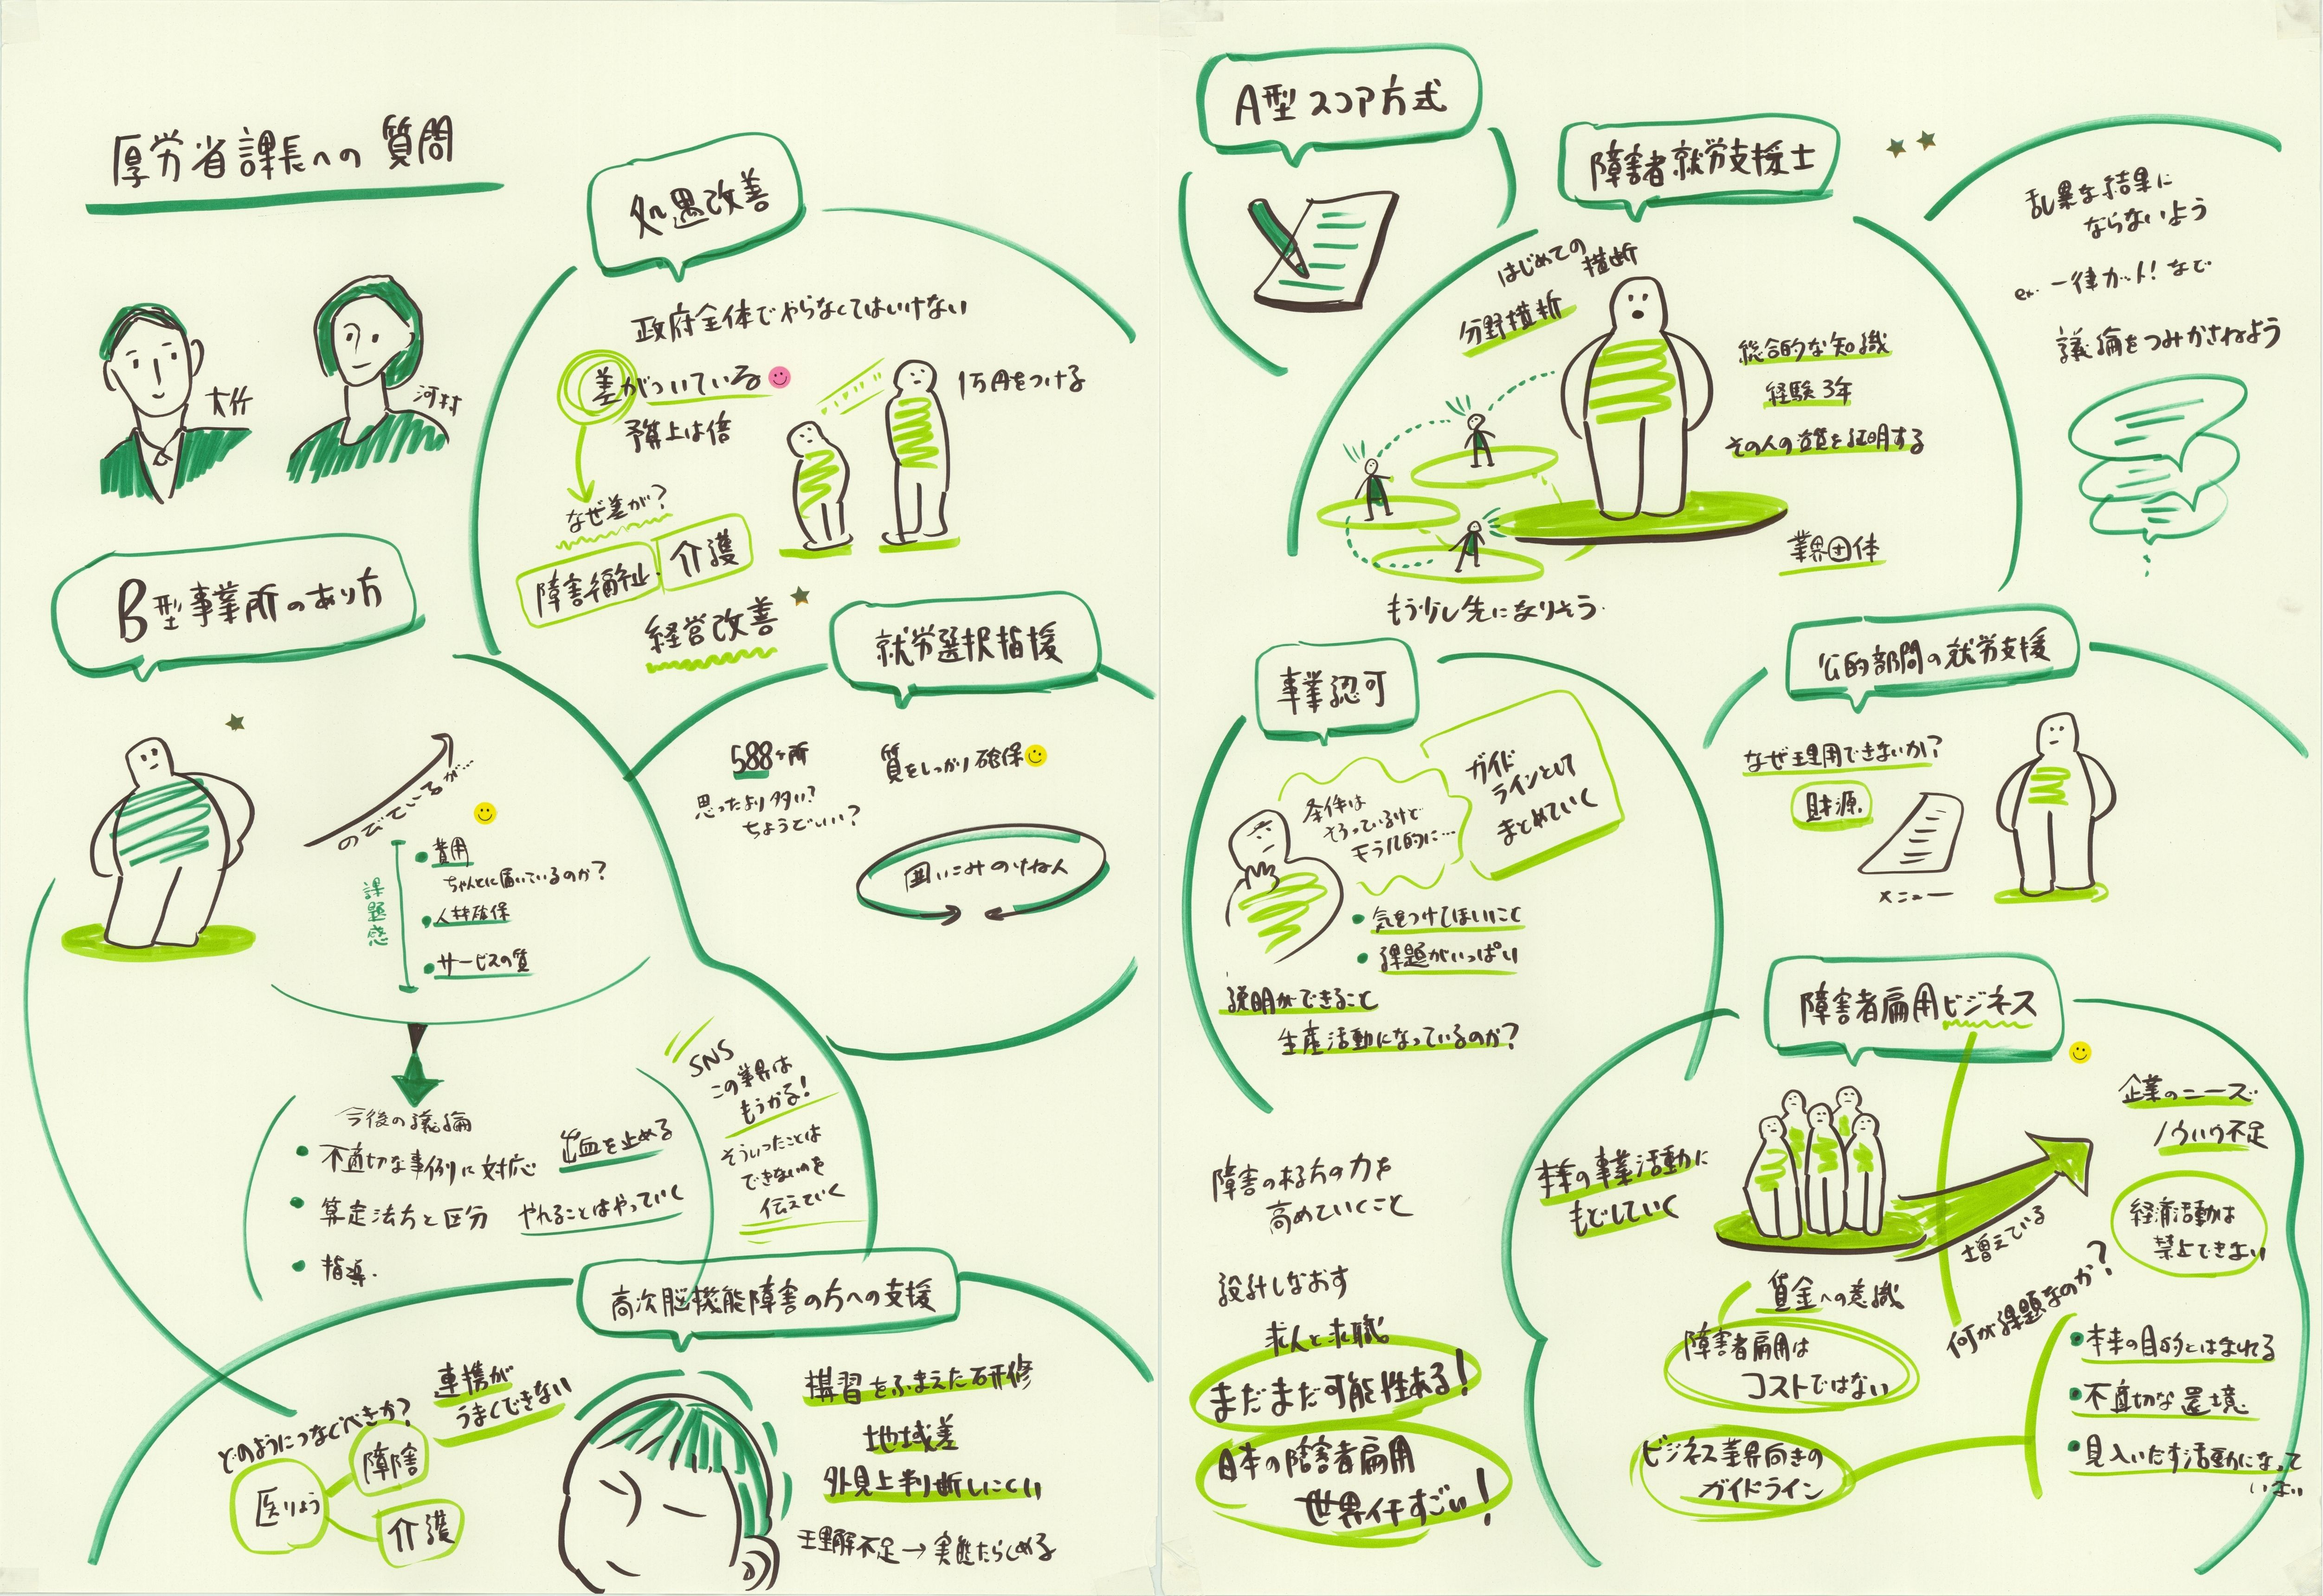 厚労省課長への質問
大竹
河村
処遇改善
政府全体でやらなくてはいけない
差がついている
予算上は倍
1万円をつける
なぜ差が?
障害福祉・介護
経営改善
B型事業所のあり方
のびているが…
課題感
費用
ちゃんとに届いているのか?
人材確保
サービスの質
今後の議論
不適切な事例に対応
出血を止める
算定法方と区分
やれることはやっていく
指導.
SNS
この業界は
もうかる!
そういったことは
できないのを
伝えていく
就労選択指援
588ヶ所
思ったより多い?
ちょうどいい?
質をしっかり確保
囲いこみの
高次脳機能障害の方への支援
どのようにつなぐべきか?
連携が
うまくできない
医りよう
障害
介護
講習をふまえた研修
地域差
外見上判断しにくい
理解不足→実態たしかめる
A型スコア方式
障害者就労支援士
はじめての
横断
分野横断
総合的な知識
経験3年
その人の資質を証明する
業界団体
もう少し先になりそう.
乱暴な結果に
ならないよう
ex. 一律カット!など
議論をつみかさねよう
事業認可
条件は
そろっているけど
モラル的に…
ガイド
ラインとして
まとめていく
気をつけてほしいこと
課題がいっぱい
説明ができること
生産活動になっているのか?
公的部門の就労支援
なぜ運用できないか?
財源.
メニュー
障害者雇用ビジネス
本業の事業活動に
もどしていく
増えている
企業のニーズ
ノウハウ不足
経済活動は
禁止できない
賃金への意識
障害者雇用は
コストではない
何が課題なのか?
本来の目的とはなれる
不適切な環境.
見入いだす活動になって
いない
ビジネス業界向きの
ガイドライン
障害のある方の力を
高めていくこと
設計しなおす
求人と求職.
まだまだ可能性ある!
日本の障害者雇用
世界イチすごい!